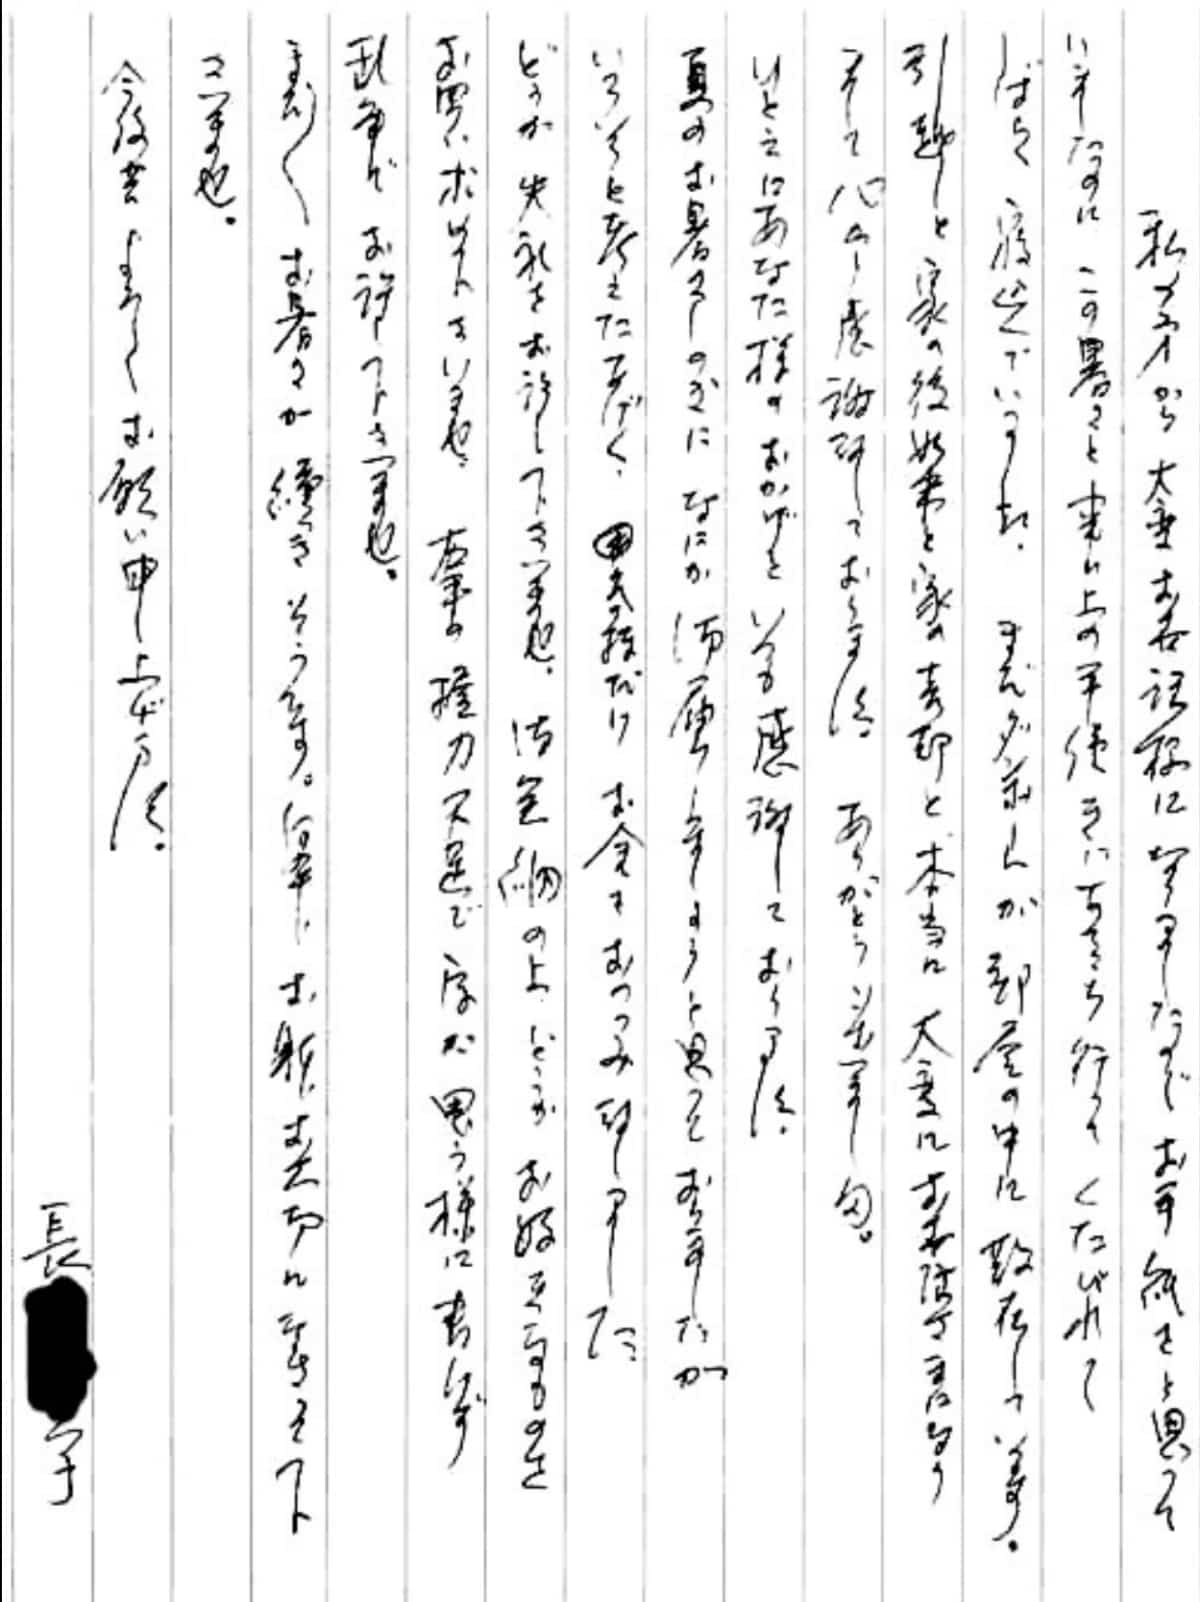 私の方から大変お世話様になりましたのでお手紙をと思って
いましたのに この暑さと 引越の手伝いに くたびれて
しばらく寝込んでいました。まだダンボールが部屋の中に散在しています。
引越しと家の後始末と家の売却と本当に大変にお世話様になり
まして心から感謝致しております。ありがとうございました。
ひとえにあなた様のおかげといつも感謝しております。
夏のお暑さしのぎになにか御届けしましょうと思っておりましたが
いろいろと考えたあげく、お金をおつつみ致しました
どうか失礼をお許し下さいませ。御笑納の上、どうかお好きなものを
お買い求め下さいませ。右手の握力不足で字が思う様に書けず
乱筆でお許し下さいませ。
まだまだお暑さが続きそうです。何卒お身お大切になさって下
さいませ。
今後共よろしくお願い申し上げます。
長 子